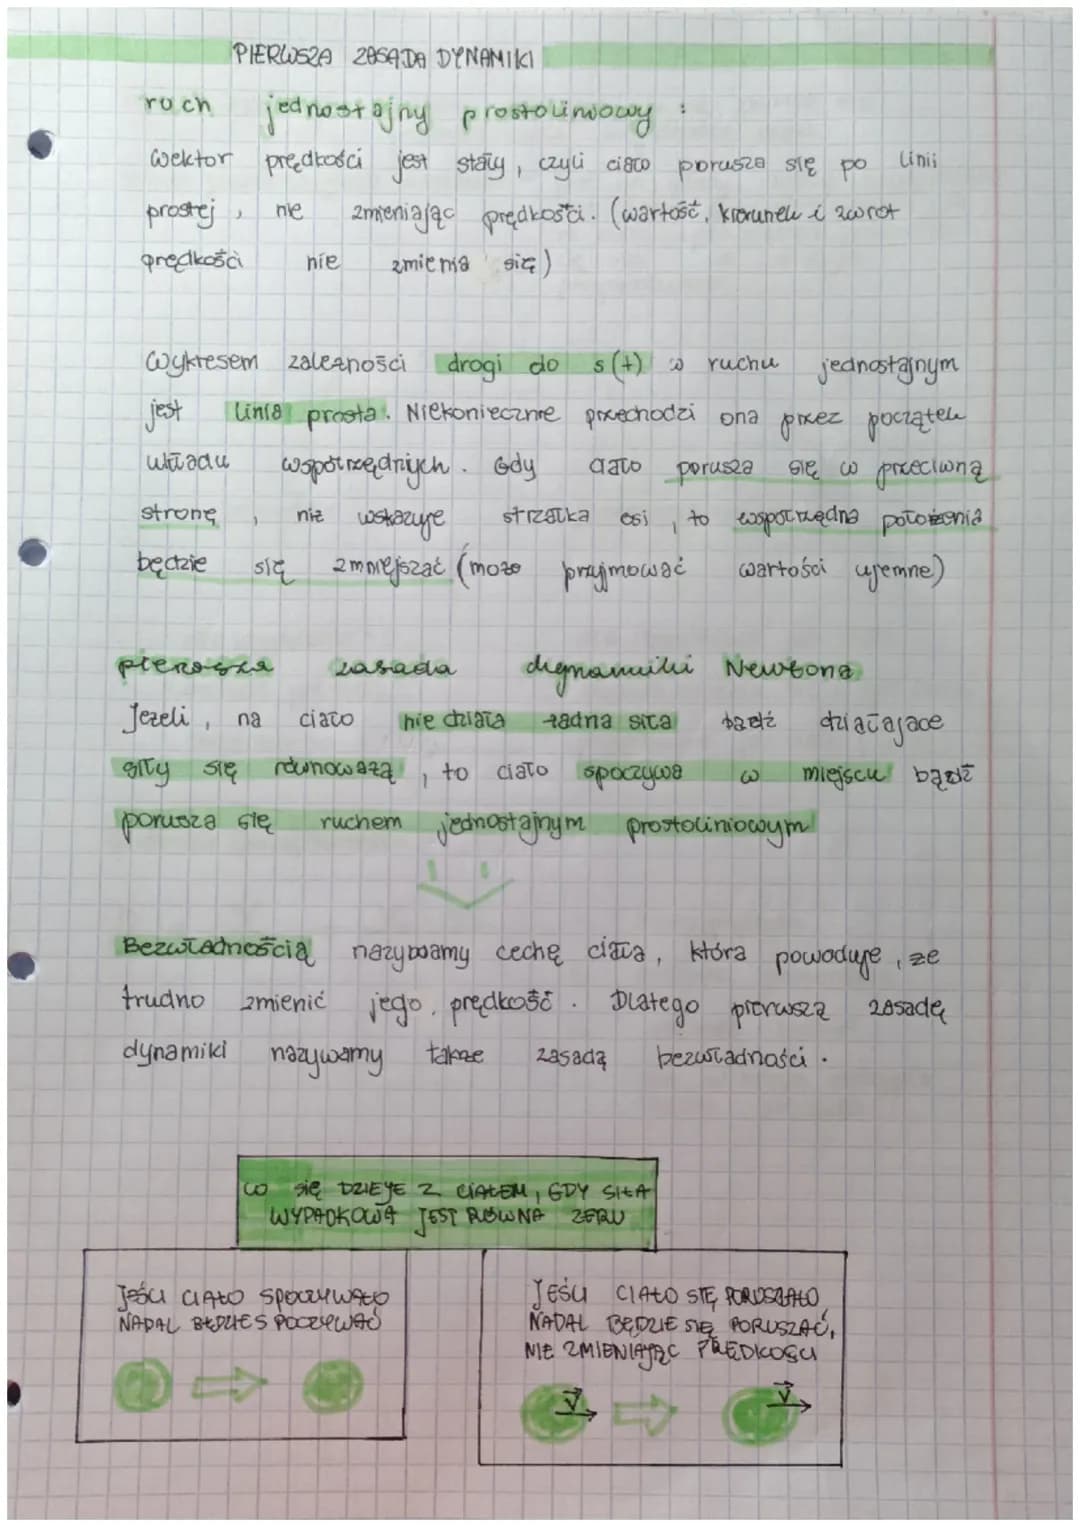 PIERWSZA ZASADA DYNAMIKI
ruch jednostajny prostoliniowy :
Wektor prędkości jest stały, czyli ciało porusza się po linii
prostej, nie zmieniając prędkości. (wartość, kierunek i zwrot
prędkości nie zmienia się)
Wykresem zależności drogi do s(t) w ruchu jednostajnym
jest linia prosta. Niekoniecznie przechodzi ona przez początek
układu współrzędnych. Gdy ciało porusza się w przeciwną
stronę, niż wskazuje strzałka osi, to współrzędna położenia
będzie się zmniejszać (może przyjmować wartości ujemne)
pierwsza zasada dynamiki Newtona
Jeżeli, na ciało nie działa żadna siła bądź działające
siły się równoważą, to ciało spoczywa w miejscu bądź
porusza się ruchem jednostajnym prostoliniowym
Bezwładnością nazywamy cechę ciała, która powoduje, że
trudno zmienić jego prędkość. Dlatego pierwszą zasadę
dynamiki nazywamy także zasadą bezwładności.
CO SIĘ DZIEJE Z CIAŁEM, GDY SIŁA
WYPADKOWA JEST RÓWNA ZERU
JEŚLI CIAŁO SPOCZYWAŁO
NADAL BĘDZIE SPOCZYWAĆ
JEŚLI CIAŁO SIĘ PORUSZAŁO
NADAL BĘDZIE SIĘ PORUSZAĆ,
NIE ZMIENIAJĄC PRĘDKOŚCI
V V